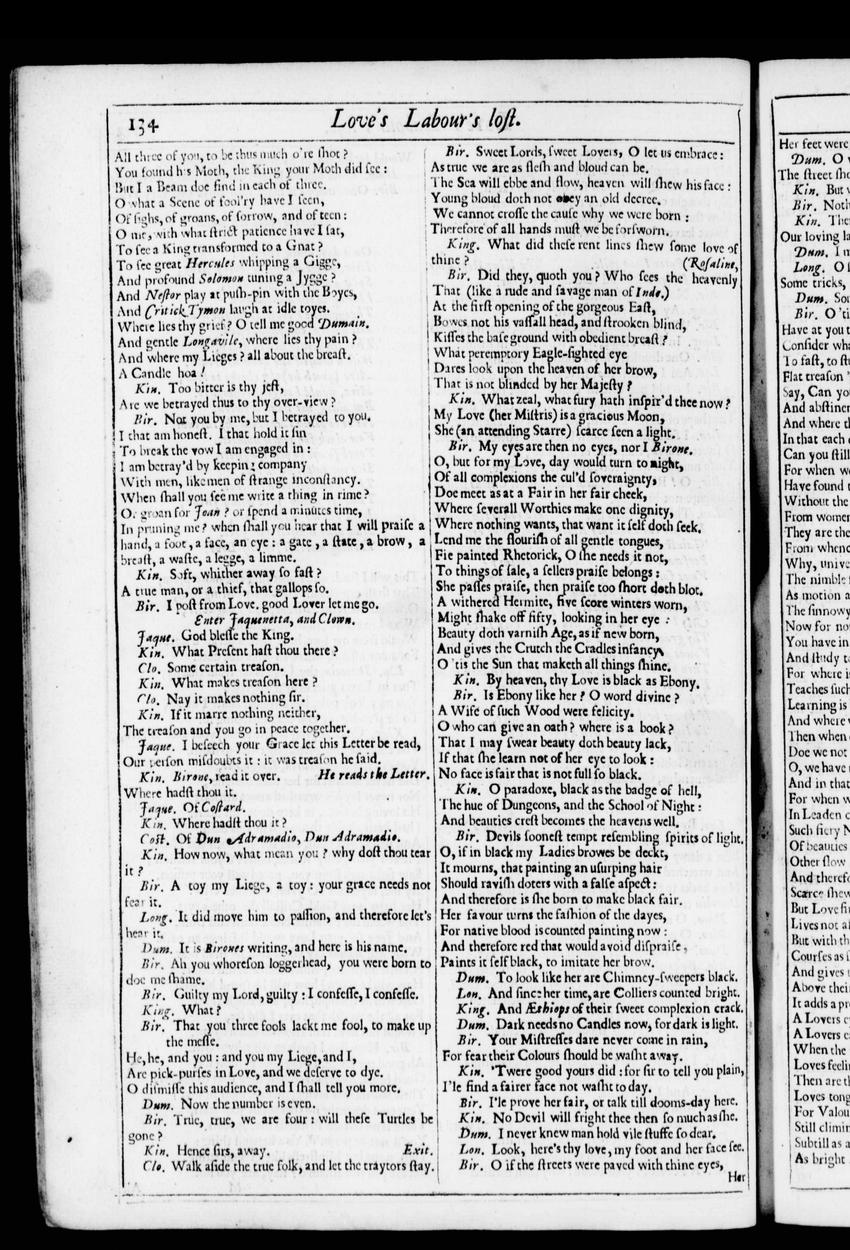 134
Love's Labour's lost.
All three of you, to be thus much o're shot?
You found his Moth, the King your Moth did see:
But I a Beam doe find in each of three.
O what a Scene of fool'ry have I seen,
Of sighs, of groans, of sorrow, and of teen:
O me, with what strict patience have I sat,
To see a King transformed to a Gnat?
To see great Hercules whipping a Gigge,
And profound Solomon tuning a Jygge?
And Nestor play at push-pin with the Boyes,
And Critick Tymon laugh at idle toyes.
Where lies thy grief? O tell me good Dumain.
And gentle Longavile, where lies thy pain?
And where my Lieges? all about the breast.
A Candle hoa!
Kin. Too bitter is thy jest,
Are we betrayed thus to thy over-view?
Bir. Not you by me, but I betrayed to you.
I that am honest. I that hold it sin
To break the vow I am engaged in:
I am betray'd by keeping company
With men, like men of strange inconstancy.
When shall you see me write a thing in rime?
Or groan for Joan? or spend a minutes time,
In pruning me? when shall you hear that I will praise a
hand, a foot, a face, an eye: a gate, a state, a brow, a
breast, a waste, a legge, a limme.
Kin. Soft, whither away so fast?
A true man, or a thief, that gallops so.
Bir. I post from Love, good Lover let me go.
Enter Jaquenetta, and Clown.
Jaque. God blesse the King.
Kin. What Present hast thou there?
Clo. Some certain treason.
Kin. What makes treason here?
Clo. Nay it makes nothing sir.
Kin. If it marre nothing neither,
The treason and you go in peace together.
Jaque. I beseech your Grace let this Letter be read,
Our person misdoubts it: it was treason he said.
Kin. Birone, read it over. He reads the Letter.
Where hadst thou it.
Jaque. Of Costard.
Kin. Where hadst thou it?
Cost. Of Dun Adramadio, Dun Adramadio.
Kin. How now, what mean you? why dost thou tear
it?
Bir. A toy my Liege, a toy: your grace needs not
fear it.
Long. It did move him to passion, and therefore let's
hear it.
Dum. It is Birones writing, and here is his name.
Bir. Ah you whoreson loggerhead, you were born to
doe me shame.
Bir. Guilty my Lord, guilty: I confesse, I confesse.
King. What?
Bir. That you three fools lackt me fool, to make up
the messe.
He, he, and you: and you my Liege, and I,
Are pick-purses in Love, and we deserve to dye.
O dismisse this audience, and I shall tell you more.
Dum. Now the number is even.
Bir. True, true, we are four: will these Turtles be
gone?
Kin. Hence sirs, away. Exit.
Clo. Walk aside the true folk, and let the traytors stay.
Bir. Sweet Lords, sweet Lovers, O let us embrace:
As true we are as flesh and bloud can be.
The Sea will ebbe and flow, heaven will shew his face:
Young bloud doth not obey an old decree.
We cannot crosse the cause why we were born:
Therefore of all hands must we be forsworn.
King. What did these rent lines shew some love of
thine? (Rosaline,
Bir. Did they, quoth you? Who sees the heavenly
That (like a rude and savage man of Inde.)
At the first opening of the gorgeous East,
Bowes not his vassall head, and strooken blind,
Kisses the base ground with obedient breast?
What peremptory Eagle-sighted eye
Dares look upon the heaven of her brow,
That is not blinded by her Majesty?
Kin. What zeal, what fury hath inspir'd thee now?
My Love (her Mistris) is a gracious Moon,
She (an attending Starre) scarce seen a light.
Bir. My eyes are then no eyes, nor I Birone.
O, but for my Love, day would turn to night,
Of all complexions the cul'd soveraignty,
Doe meet as at a Fair in her fair cheek,
Where severall Worthies make one dignity,
Where nothing wants, that want it self doth seek.
Lend me the flourish of all gentle tongues,
Fie painted Rhetorick, O she needs it not,
To things of sale, a sellers praise belongs:
She passes praise, then praise too short doth blot.
A withered Hermite, five score winters worn,
Might shake off fifty, looking in her eye:
Beauty doth varnish Age, as if new born,
And gives the Crutch the Cradles infancy,
O 'tis the Sun that maketh all things shine.
Kin. By heaven, thy Love is black as Ebony.
Bir. Is Ebony like her? O word divine?
A Wife of such Wood were felicity.
O who can give an oath? where is a book?
That I may swear beauty doth beauty lack,
If that she learn not of her eye to look:
No face is fair that is not full so black.
Kin. O paradoxe, black as the badge of hell,
The hue of Dungeons, and the School of Night:
And beauties crest becomes the heavens well.
Bir. Devils soonest tempt resembling spirits of light.
O, if in black my Ladies browes be deckt,
It mourns, that painting an usurping hair
Should ravish doters with a false aspect:
And therefore is she born to make black fair.
Her favour turns the fashion of the dayes,
For native blood is counted painting now:
And therefore red that would avoid dispraise,
Paints it self black, to imitate her brow.
Dum. To look like her are Chimney-sweepers black.
Lon. And since her time, are Colliers counted bright.
King. And Æthiops of their sweet complexion crack.
Dum. Dark needs no Candles now, for dark is light.
Bir. Your Mistresses dare never come in rain,
For fear their Colours should be washt away.
Kin. 'Twere good yours did: for sir to tell you plain,
I'le find a fairer face not washt to day.
Bir. I'le prove her fair, or talk till dooms-day here.
Kin. No Devil will fright thee then so much as she.
Dum. I never knew man hold vile stuffe so dear.
Lon. Look, here's thy love, my foot and her face see.
Bir. O if the streets were paved with thine eyes,
Her
Her feet were
Dum. O
The street
Kin. But
Bir.
Kin.
Our loving
Dum. I
Long. O
Some tricks,
Dum.
Bir. O 'ti
Have at you
Consider
To fast, to
Flat treason
Say, Can
And
And where
In that each
Can you still
For when
Have found
Without the
From
They are the
From
Why,
The nimble
As motion
The sinnowy
Now for
You have in
And study
For where
Teaches such
Learning is
And where
Then when
Doe we not
O, we have
And in that
For when
In Leaden
Such fiery
Of beauties
Other slow
And
Scarce shew
But Love
Lives not
But with
Courses as
And gives
Above their
It adds a
A Lovers
A Lovers
When the
Loves
Then are
Loves
For
Still
Subtill as
As bright